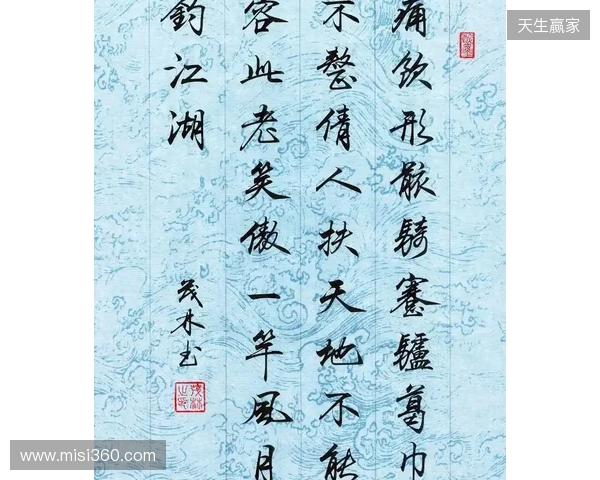 痛飲形骸騎蹇驢葛巾
不整倩人扶天地不能
容此老笑傲一竿風月
釣江湖
茂林书
天生赢家
www.misi360.com